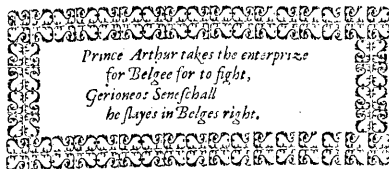 Prince Arthur takes the enterprize
for Belgee for to fight,
Gerioneos Seneſchall
he ſlayes in Belges right.